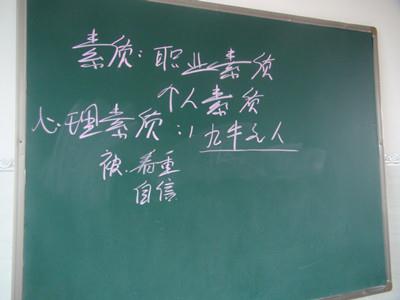 素质：职业素质
个人素质
心理素质：九牛之人
被看重
自信